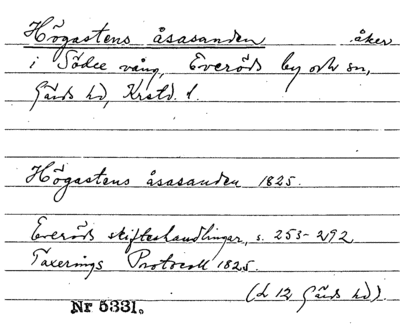 Högastens åsasanden åker
i Södre vång, Everöds by och sn,
Gärds hd, Krstd. l.
Högastens åsasanden 1825.
Everöds skifteshandlingar, s. 253-292
Taxerings Protocoll 1825.
(L 12 Gärds hd).
Nr 5331.